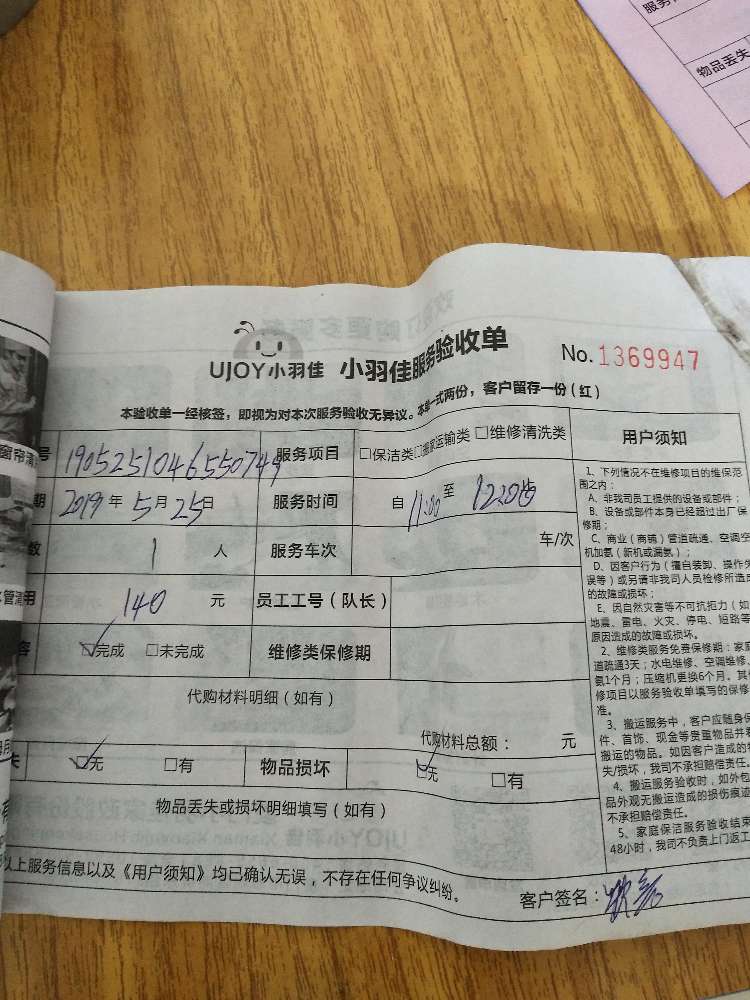 服务
物品丢失
UJOY小羽佳 小羽佳服务验收单 No. 1369947
本验收单一经核签，即视为对本次服务验收无异议。本单一式两份，客户留存一份(红)
号 1905251046550749 服务项目 □保洁类□搬家运输类 □维修清洗类
期 2019年5月25日 服务时间 自11:00至12:00
数 1 人 服务车次 车/次
用 140 元 员工工号(队长)
容 ☑完成 □未完成 维修类保修期
代购材料明细(如有)
代购材料总额： 元
失 ☑无 □有 物品损坏 ☑无 □有
物品丢失或损坏明细填写(如有)
以上服务信息以及《用户须知》均已确认无误，不存在任何争议纠纷。
客户签名：
用户须知
1、下列情况不在维修项目的维保范
围之内：
A、非我司员工提供的设备或部件；
B、设备或部件本身已经超过出厂保
修期；
C、商业(商铺)管道疏通、空调空
机加氨(新机或漏氨)；
D、因客户行为(擅自装卸、操作失
误等)或另请非我司人员检修所造成
的故障或损坏；
E、因自然灾害等不可抗拒力(如
地震、雷电、火灾、停电、短路等
原因造成的故障或损坏。
2、维修类服务免费保修期：家庭
道疏通3天；水电维修、空调维修、
氨1个月；压缩机更换6个月。其
修项目以服务验收单填写的保修
准。
3、搬运服务中，客户应随身保
件、首饰、现金等贵重物品并看
搬运的物品。如因客户造成的
失/损坏，我司不承担赔偿责任。
4、搬运服务验收时，如外包
品外观无搬运造成的损伤痕迹
不承担赔偿责任。
5、家庭保洁服务验收结束
48小时，我司不负责上门返工